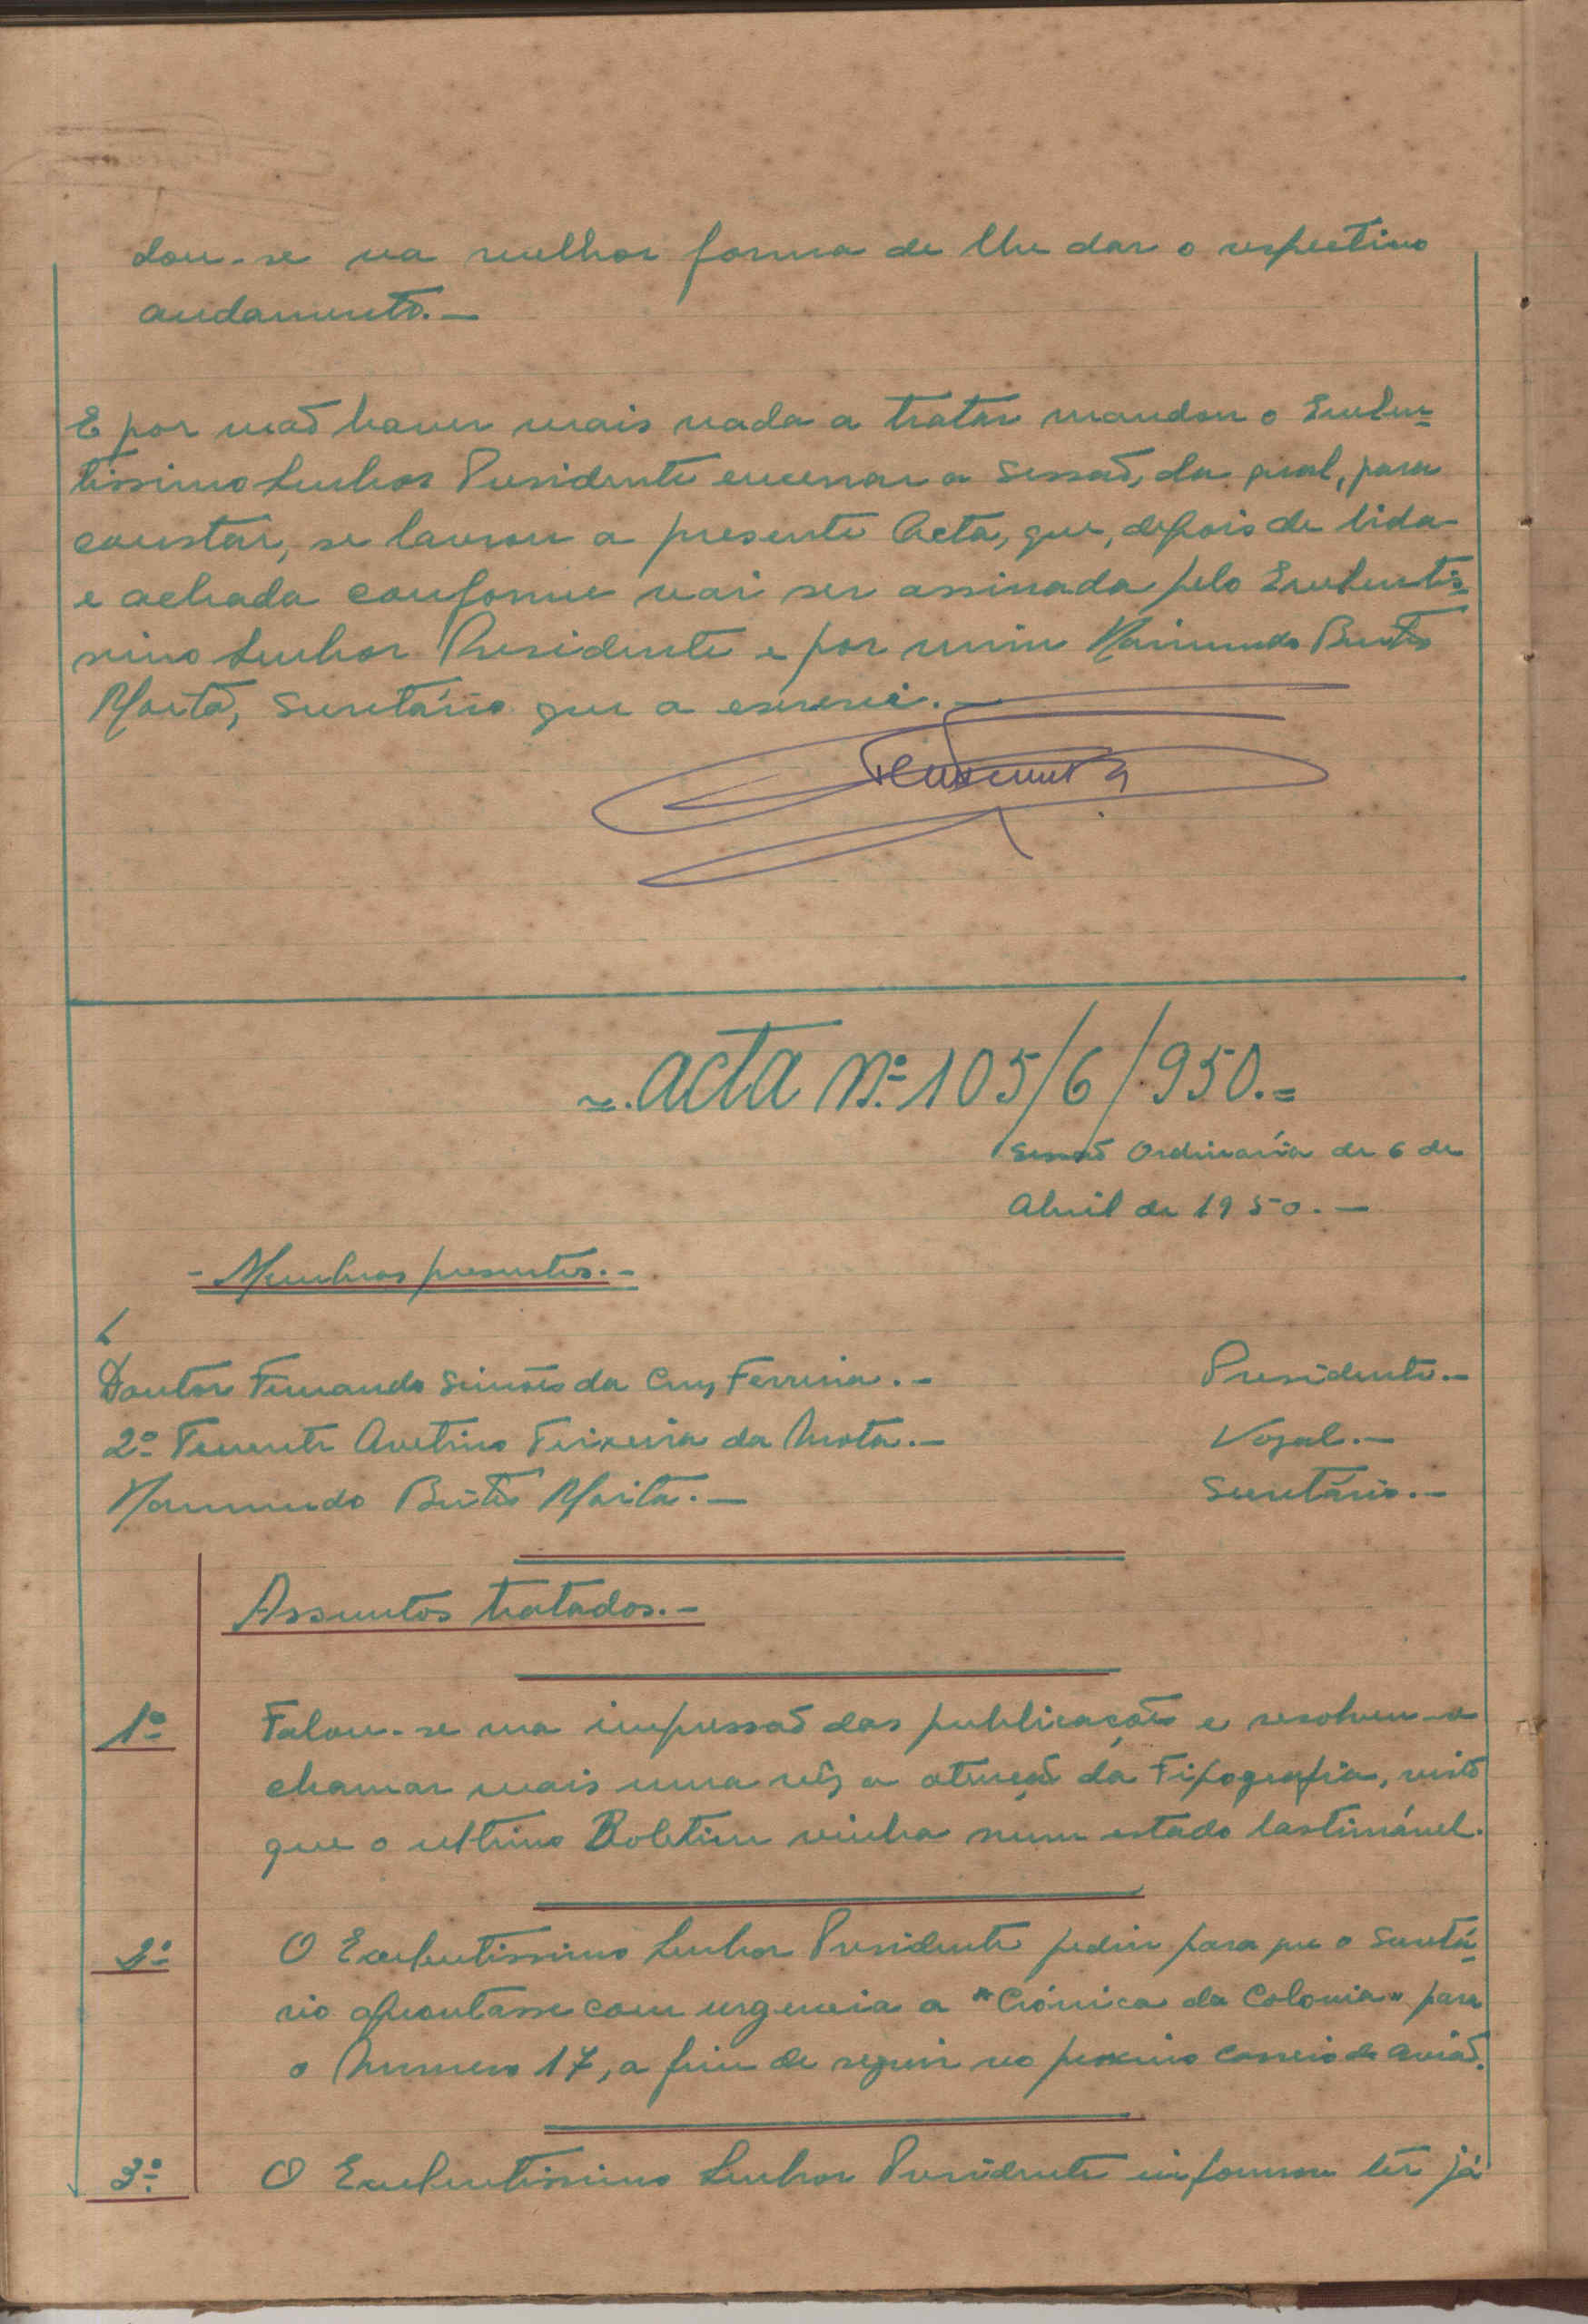 dou-se na melhor forma de lhe dar o respectivo
andamento.—
E por não haver mais nada a tratar mandou o Excelen-
tíssimo Senhor Presidente encerrar a sessão, da qual, para
constar, se lavrou a presente Acta, que, depois de lida
e achada conforme vai ser assinada pelo Excelentís-
simo Senhor Presidente e por mim
secretário que a escrevi.—
=.Acta Nº 105/6/950.=
Sessão Ordinária de 6 de
Abril de 1950.—
- Membros presentes.-
Doutor Fernando Simões da Cruz Ferreira.—
Presidente.—
2º Tenente Avelino Teixeira da Mota.—
Vogal.—
Secretário.—
Assuntos tratados.—
1º
Falou-se na impressão das publicações e resolveu-se
chamar mais uma vêz a atenção da Tipografia, visto
que o ultimo Boletim vinha num estado lastimável.
2º
O Excelentissimo Senhor Presidente pediu para que o Secretá-
rio aprontasse com urgencia a "Crónica da Colonia" para
o Numero 17, a fim de seguir no proximo correio de avião.
3º
O Excelentissimo Senhor Presidente informou têr já